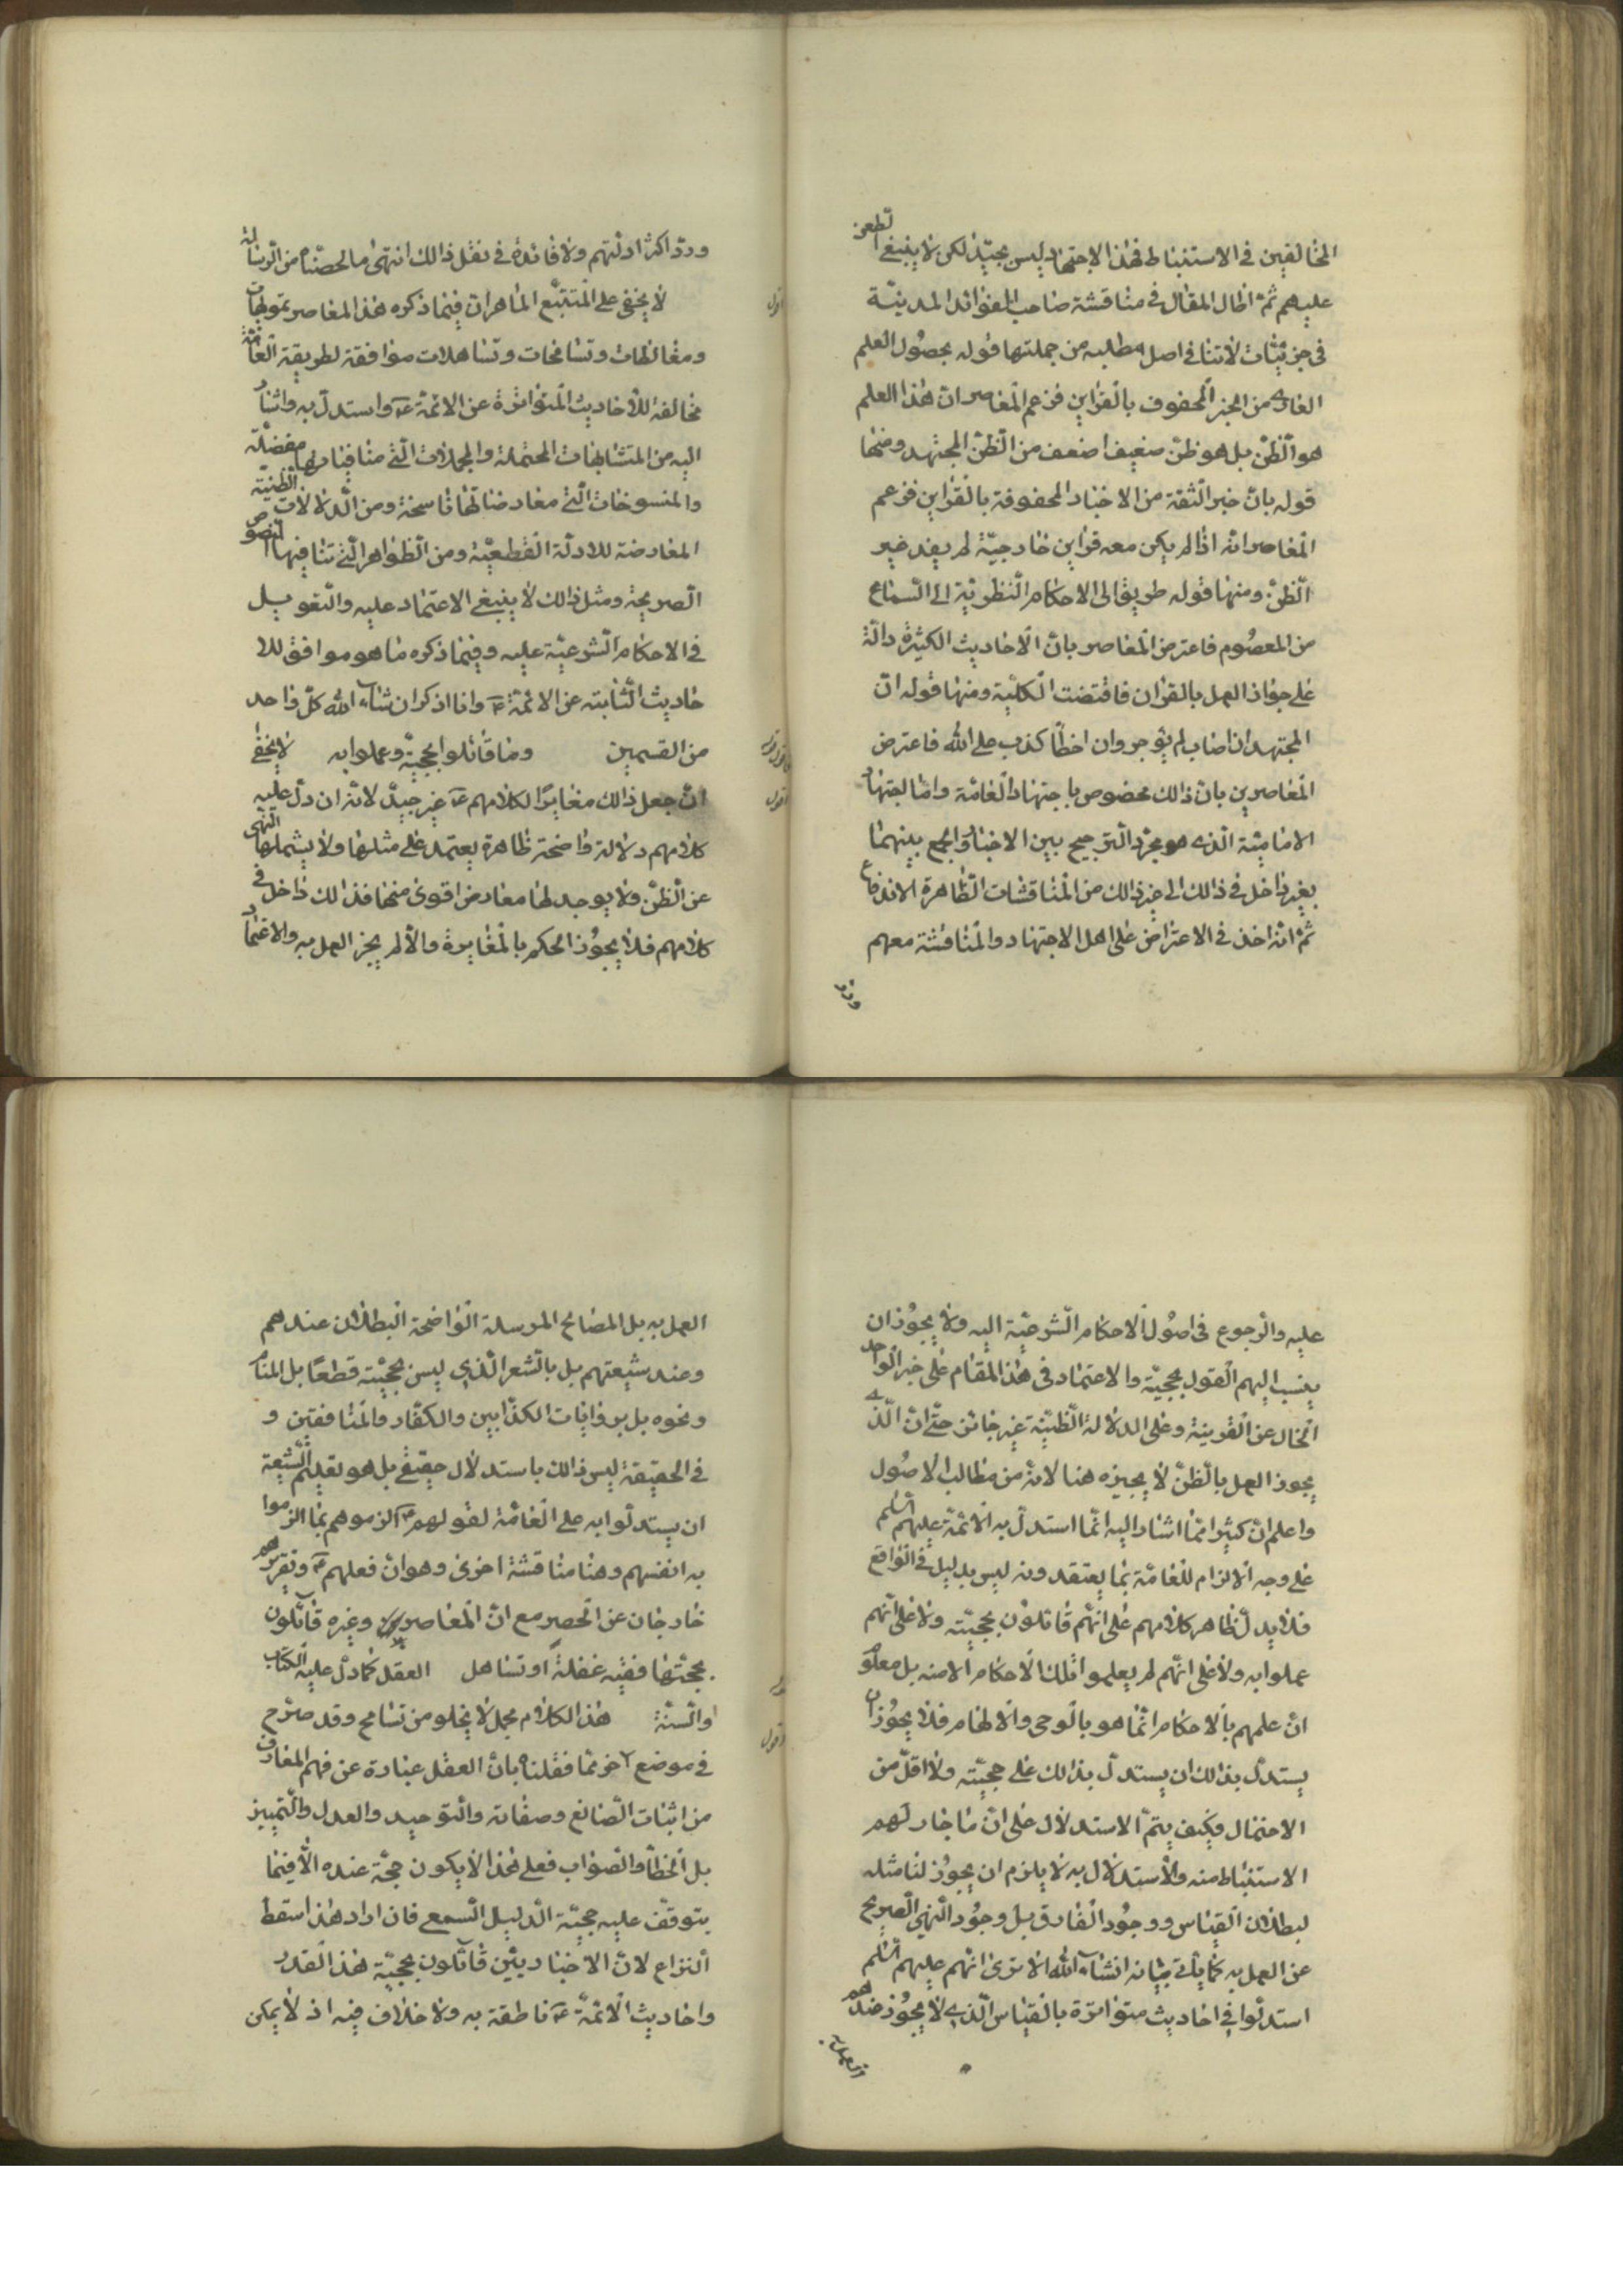 المخالفين في الاستنباط فهذا الاجتهاد ليس بجيّد لكن لا ينبغي الطعن
عليهم ثمّ اطال المقال في مناقشة صاحب الفوائد المدنيّة
في جزئيّات لا تنافي اصل مطلبه من جملتها قوله بحصول العلم
العادي من الخبر المحفوف بالقراين فزعم المعاصر انّ هذا العلم
هو الظنّ بل هو ظنّ ضعيف اضعف من الظنّ المجتهد ومنها
قوله بانّ خبر الثقة من الاخبار المحفوفة بالقراين فزعم
المعاصر انّه اذا لم يكن معه قراين خارجيّة لم يفد غير
الظنّ ومنها قوله طريقا الى الاحكام النظريّة الى السماع
من المعصوم فاعترض المعاصر بانّ الاحاديث الكثيرة دالّة
على جواز العمل بالقران فاقتضت الكلّية ومنها قوله انّ
المجتهد ان اصاب لم يؤجر وان اخطأ كذب على الله فاعترض
المعاصرين بانّ ذلك مخصوص باجتهاد العامّة وامّا اجتهاد
الاماميّة الذي هو مجرّد الترجيح بين الاخبار والجمع بينهما
بغير داخل في ذالك الى غير ذالك من المناقشات الظاهرة الاندفاع
ثمّ انّه اخذ في الاعتراض على اهل الاجتهاد والمناقشة معهم
وردّ
وردّ اكثر ادلّتهم ولا فائدة في نقل ذالك انتهى ما لخصناه من الرسالة
اقول
لا يخفى على المتتبّع الماهر انّ فيما ذكره هذا المعاصر تمويهات
ومغالطات وتسامحات وتساهلات موافقة لطريقة العامّة
مخالفة للاحاديث المتواترة عن الائمّة ع واستدلّ به واشار
اليه من المتشابهات المحتملة والمجملات الّتي منافياتها مفصّلة
والمنسوخات الّتي معارضاتها ناسخة ومن الدلالات الظنيّة
المعارضة للادلّة القطعيّة ومن الظواهر الّتي تنافيها النصوص
الصريحة ومثل ذالك لا ينبغي الاعتماد عليه والتعويل
في الاحكام الشرعيّة عليه وفيما ذكره ما هو موافق للا
حاديث الثابته عن الائمّة ع وانا اذكر ان شاء الله كلّ واحد
من القسمين وما قائلوا بحجيّة وعملوا به لا يخفى
اقول
انّ جعل ذالك مغايرًا لكلامهم ع غير جيّد لانّه ان دلّ عليه
كلامهم دلالة واضحة ظاهرة يعتمد على مثلها ولا يشملها النهي
عن الظنّ ولا يوجد لها معارض اقوى منها فذالك داخل في
كلامهم فلا يجوز الحكم بالمغايرة والّا لم يجز العمل به والاعتماد
عليه والرجوع في اصول الاحكام الشرعيّة اليه ولا يجوز ان
ينسب اليهم القول بحجيّة والاعتماد في هذا المقام على خبر الواحد
الخال عن القرينة وعلى الدلالة الظنيّة غير جائز حتّى انّ الّذي
يجوز العمل بالظنّ لا يجيزه هنا لانّه من مطالب الاصول
واعلم انّ كثيرا ممّا اشار اليه انّما استدلّ به الائمّة عليهم السلم
على وجه الالزام للعامّة بما يعتقدونه ليس بدليل في الواقع
فلا يدلّ ظاهر كلامهم على انّهم قائلون بحجيّته ولا على انّهم
عملوا به ولا على انّهم لم يعلموا تلك الاحكام الا منه بل معلوم
انّ علمهم بالاحكام انّما هو بالوحي والالهام فلا يجوز ان
يستدلّ بذالك ان يستدلّ بذالك على حجيّته ولا اقلّ من
الاحتمال فكيف يتمّ الاستدلال على انّ ما جاز لهم
الاستنباط منه والاستدلال به لا يلزم ان يجوز لنا مثله
لبطلان القياس ووجود الفارق بل وجود النهي الصريح
عن العمل به كما يأتي بيانه انشاء الله الا ترى انّهم عليهم السلم
استدلّوا في احاديث متواترة بالقياس الّذي لا يجوز عندهم
العمل به
العمل به بل المصالح المرسلة الواضحة البطلان عندهم
وعند شيعتهم بل بالشعر الّذي ليس بحجيّته قطعًا بل المنام
ونحوه بل بروايات الكذّابين والكفّار والمنافقين و
في الحقيقة ليس ذالك باستدلال حقيقي بل هو تعليم الشيعة
ان يستدلّوا به على العامّة لقولهم ع الزموهم بما الزموا
به انفسهم وهنا مناقشة اخرى وهو انّ فعلهم ع وتقريرهم
خارجان عن الحصر مع انّ المعاصر وغيره قائلون
بحجّتها ففيه غفلة او تساهل العقل كما دلّ عليه الكتاب
والسنّة هذا الكلام مجمل لا يخلو من تسامح وقد صرّح
اقول
في موضع آخر ممّا فقلناه بانّ العقل عبارة عن فهم المعارف
من اثبات الصانع وصفاته والتوحيد والعدل والتمييز
بل الخطأ والصواب فعلى هذا لا يكون حجّة عنده الّا فيما
يتوقّف عليه حجيّة الدليل السمعي فان اراد هذا سقط
النزاع لانّ الاخباريّين قائلون بحجيّة هذا القدر
واحاديث الائمّة ع ناطقة به ولا خلاف فيه اذ لا يمكن